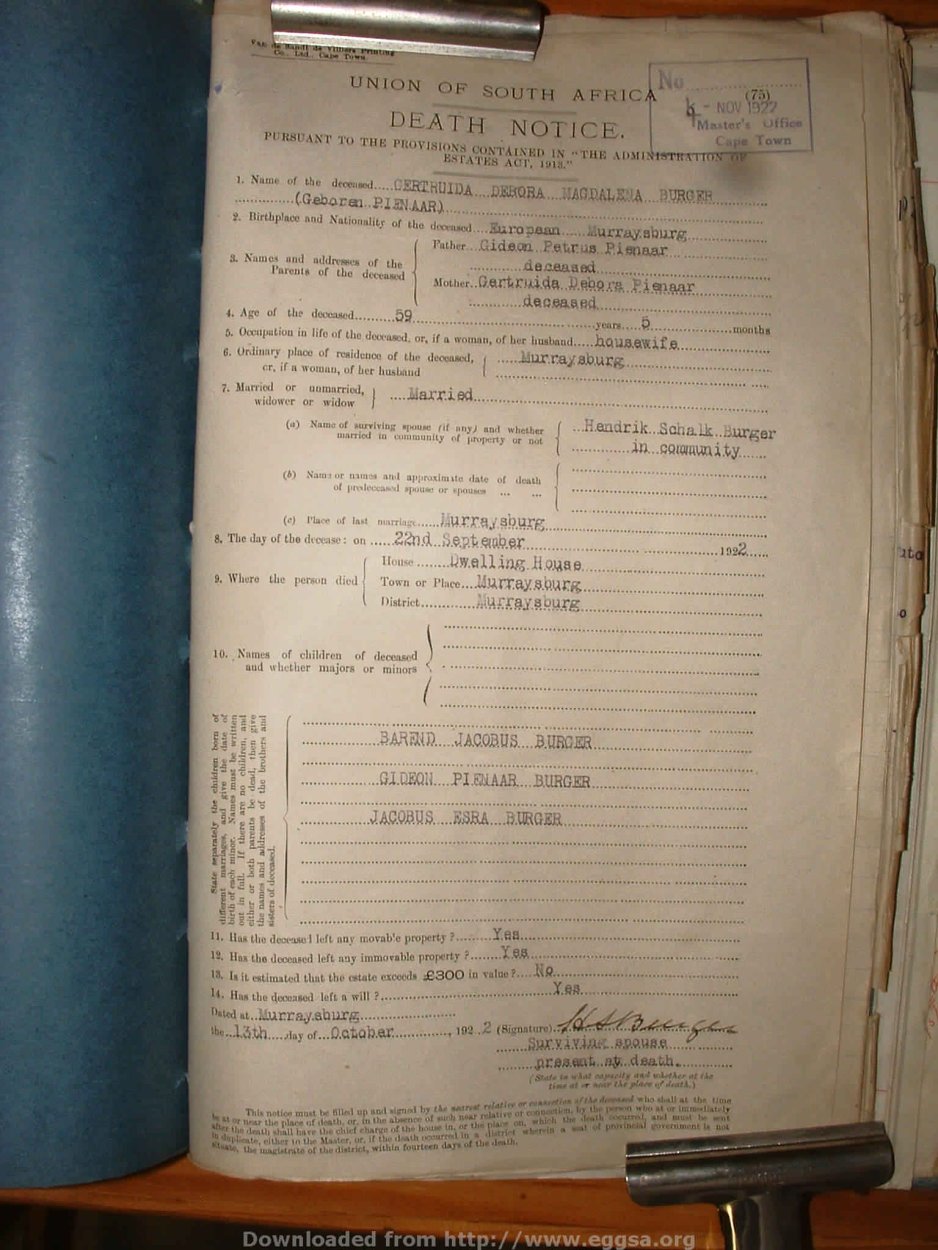 Van de Sandt de Villiers Printing
Co., Ltd., Cape Town
UNION OF SOUTH AFRICA
No
(75)
4 - NOV 1922
Master's Office
Cape Town
DEATH NOTICE.
PURSUANT TO THE PROVISIONS CONTAINED IN "THE ADMINISTRATION OF
ESTATES ACT, 1913."
1. Name of the deceased GERTRUIDA DEBORA MAGDALENA BURGER
(Geboren PIENAAR)
2. Birthplace and Nationality of the deceased European Murraysburg
3. Names and addresses of the Parents of the deceased
Father Gideon Petrus Pienaar
deceased
Mother Gertruida Debora Pienaar
deceased
4. Age of the deceased 59 years 5 months
5. Occupation in life of the deceased, or, if a woman, of her husband housewife
6. Ordinary place of residence of the deceased, Murraysburg
or, if a woman, of her husband
7. Married or unmarried, Married
widower or widow
(a) Name of surviving spouse (if any) and whether Hendrik Schalk Burger
married in community of property or not in community
(b) Name or names and approximate date of death
of predeceased spouse or spouses ... ...
(c) Place of last marriage Murraysburg
8. The day of the decease: on 22nd September 1922
9. Where the person died
House Dwelling House
Town or Place Murraysburg
District Murraysburg
10. Names of children of deceased
and whether majors or minors
State separately the children born of
different marriages, and give the date of
birth of each minor. Names must be written
out in full. If there are no children, and
either or both parents be dead, then give
the names and addresses of the brothers and
sisters of deceased.
BAREND JACOBUS BURGER
GIDEON PIENAAR BURGER
JACOBUS ESRA BURGER
11. Has the deceased left any movable property? Yes
12. Has the deceased left any immovable property? Yes
13. Is it estimated that the estate exceeds £300 in value? No
14. Has the deceased left a will? Yes
Dated at Murraysburg
the 13th day of October, 1922 (Signature) HSBurger
Surviving spouse
present at death.
(State in what capacity and whether at the
time at or near the place of death.)
This notice must be filled up and signed by the nearest relative or connection of the deceased who shall at the time
be at or near the place of death, or, in the absence of such near relative or connection, by the person who at or immediately
after the death shall have the chief charge of the house in, or the place on, which the death occurred, and must be sent
in duplicate, either to the Master, or, if the death occurred in a district wherein a seat of provincial government is not
situate, the magistrate of the district, within fourteen days of the death.
Downloaded from http://www.eggsa.org